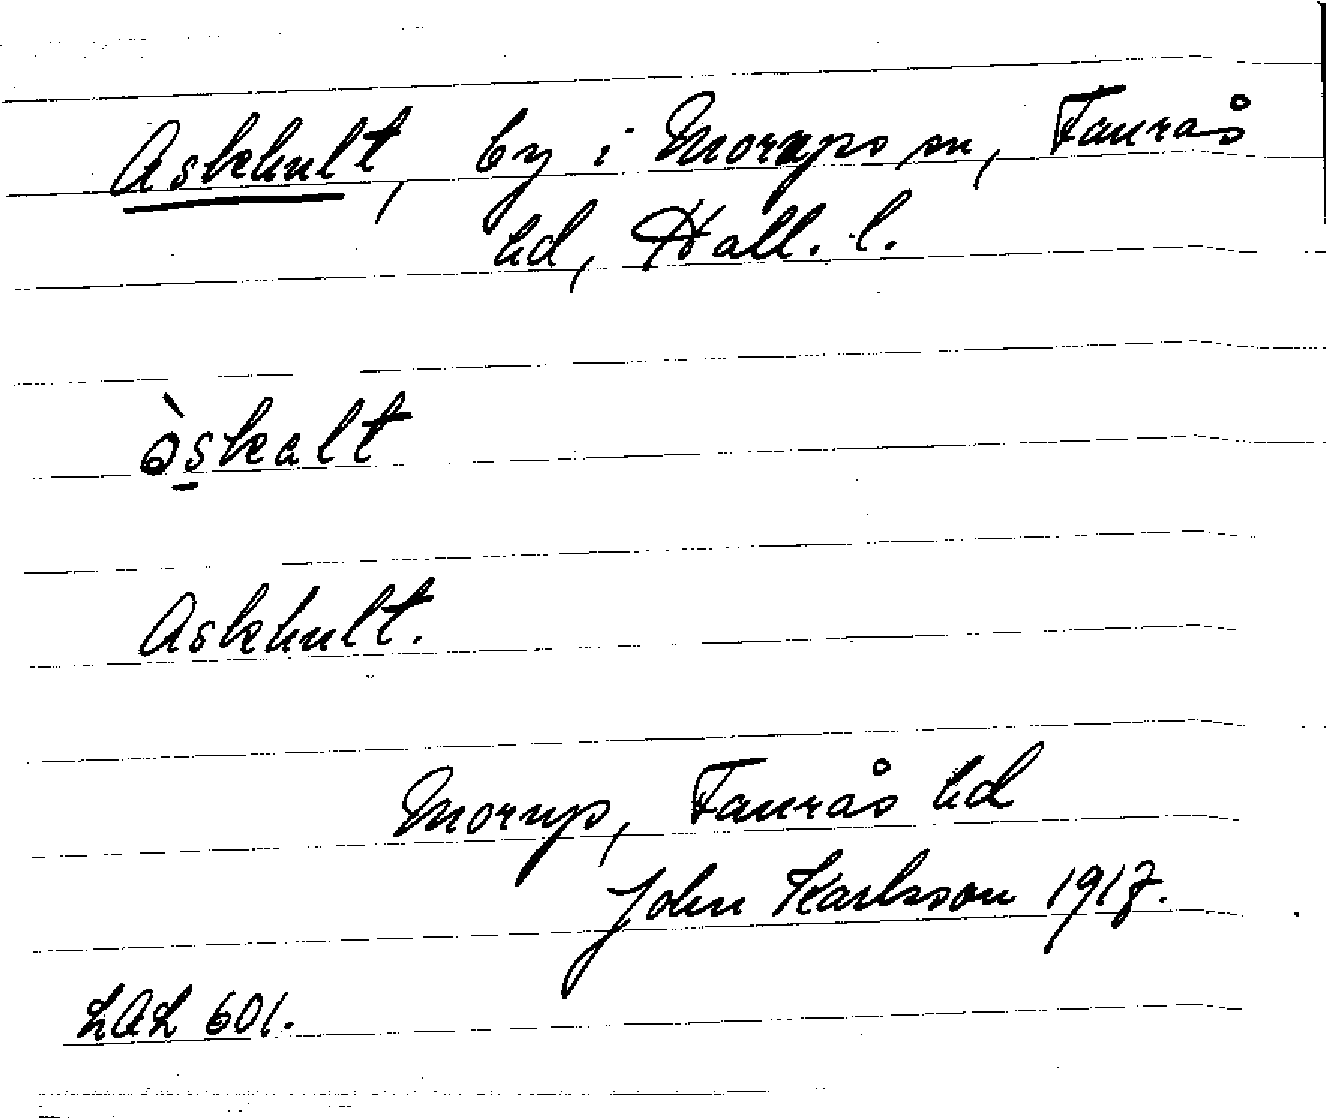 Askhult, by i Morups sn, Faurås
hd, Hall. l.
àskalt
Askhult.
Morup, Faurås hd
John Karlsson 1917.
LAL 601.